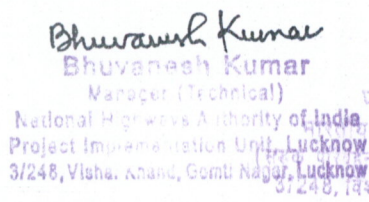 Bhuvanesh Kumar
Bhuvanesh Kumar
Manager (Technical)
National Highways Authority of India
Project Implementation Unit, Lucknow
3/248, Vishal Khand, Gomti Nagar, Lucknow
3/248,